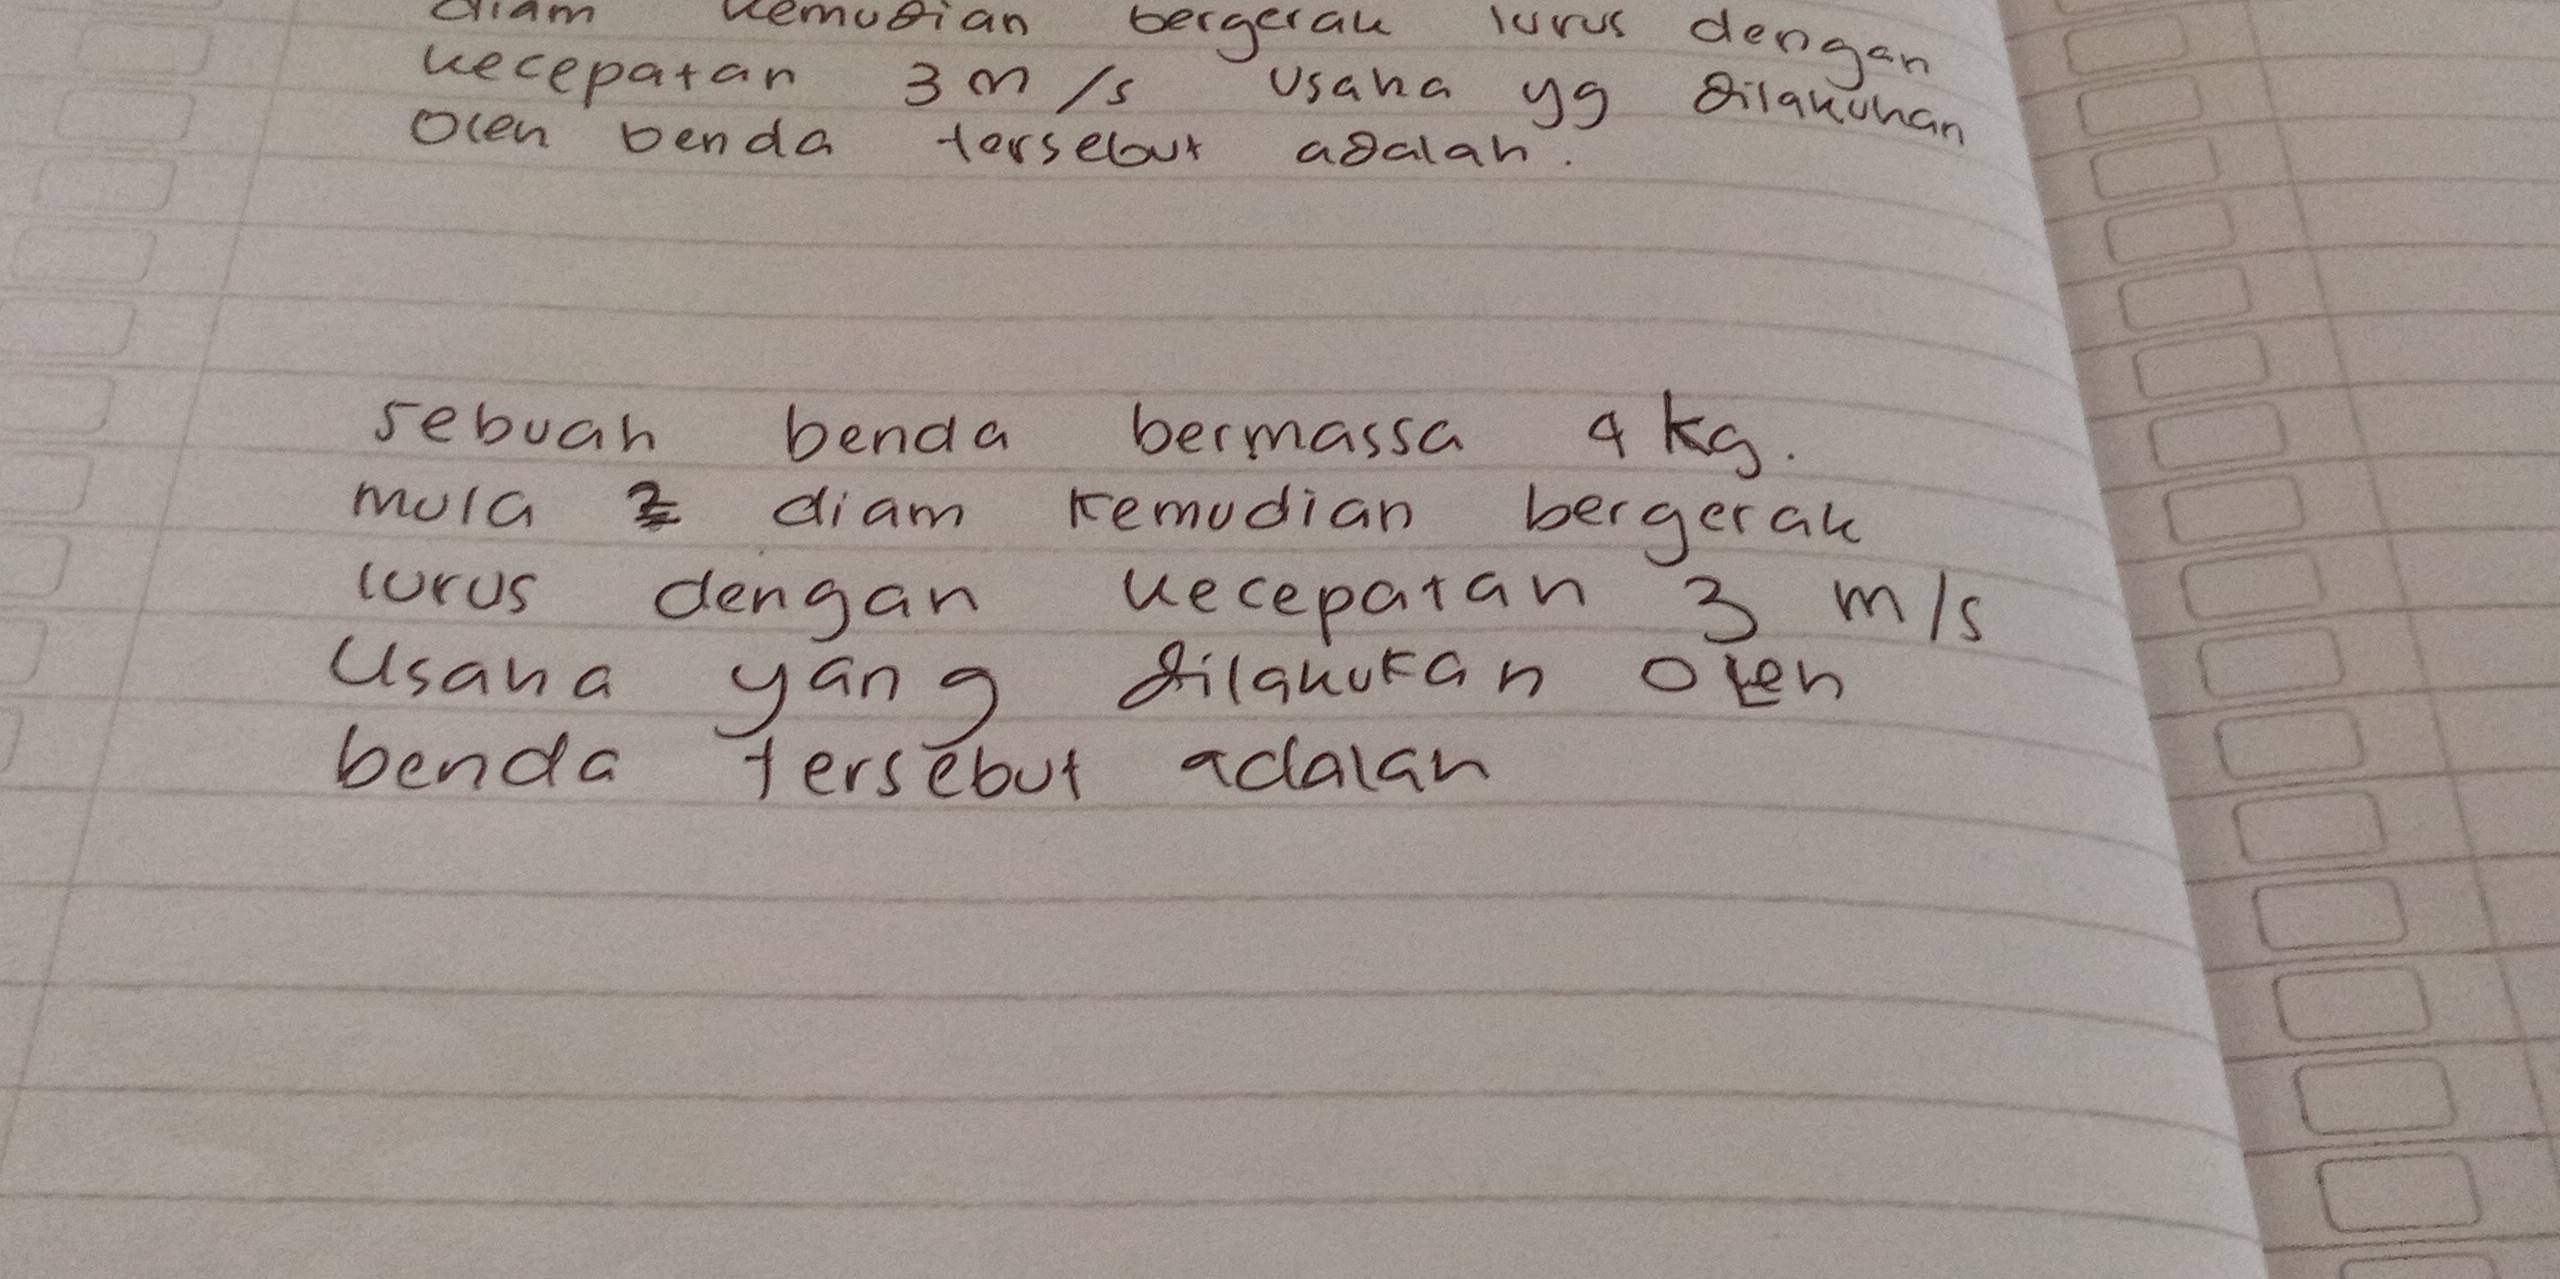 diam kemudian bergerak lurus dengan
kecepatan 3 m/s usaha yg dilakukan
oleh benda tersebut adalah.
sebuah benda bermassa 4 kg.
mula 2 diam kemudian bergerak
lurus dengan kecepatan 3 m/s
Usaha yang dilakukan oleh
benda tersebut adalah